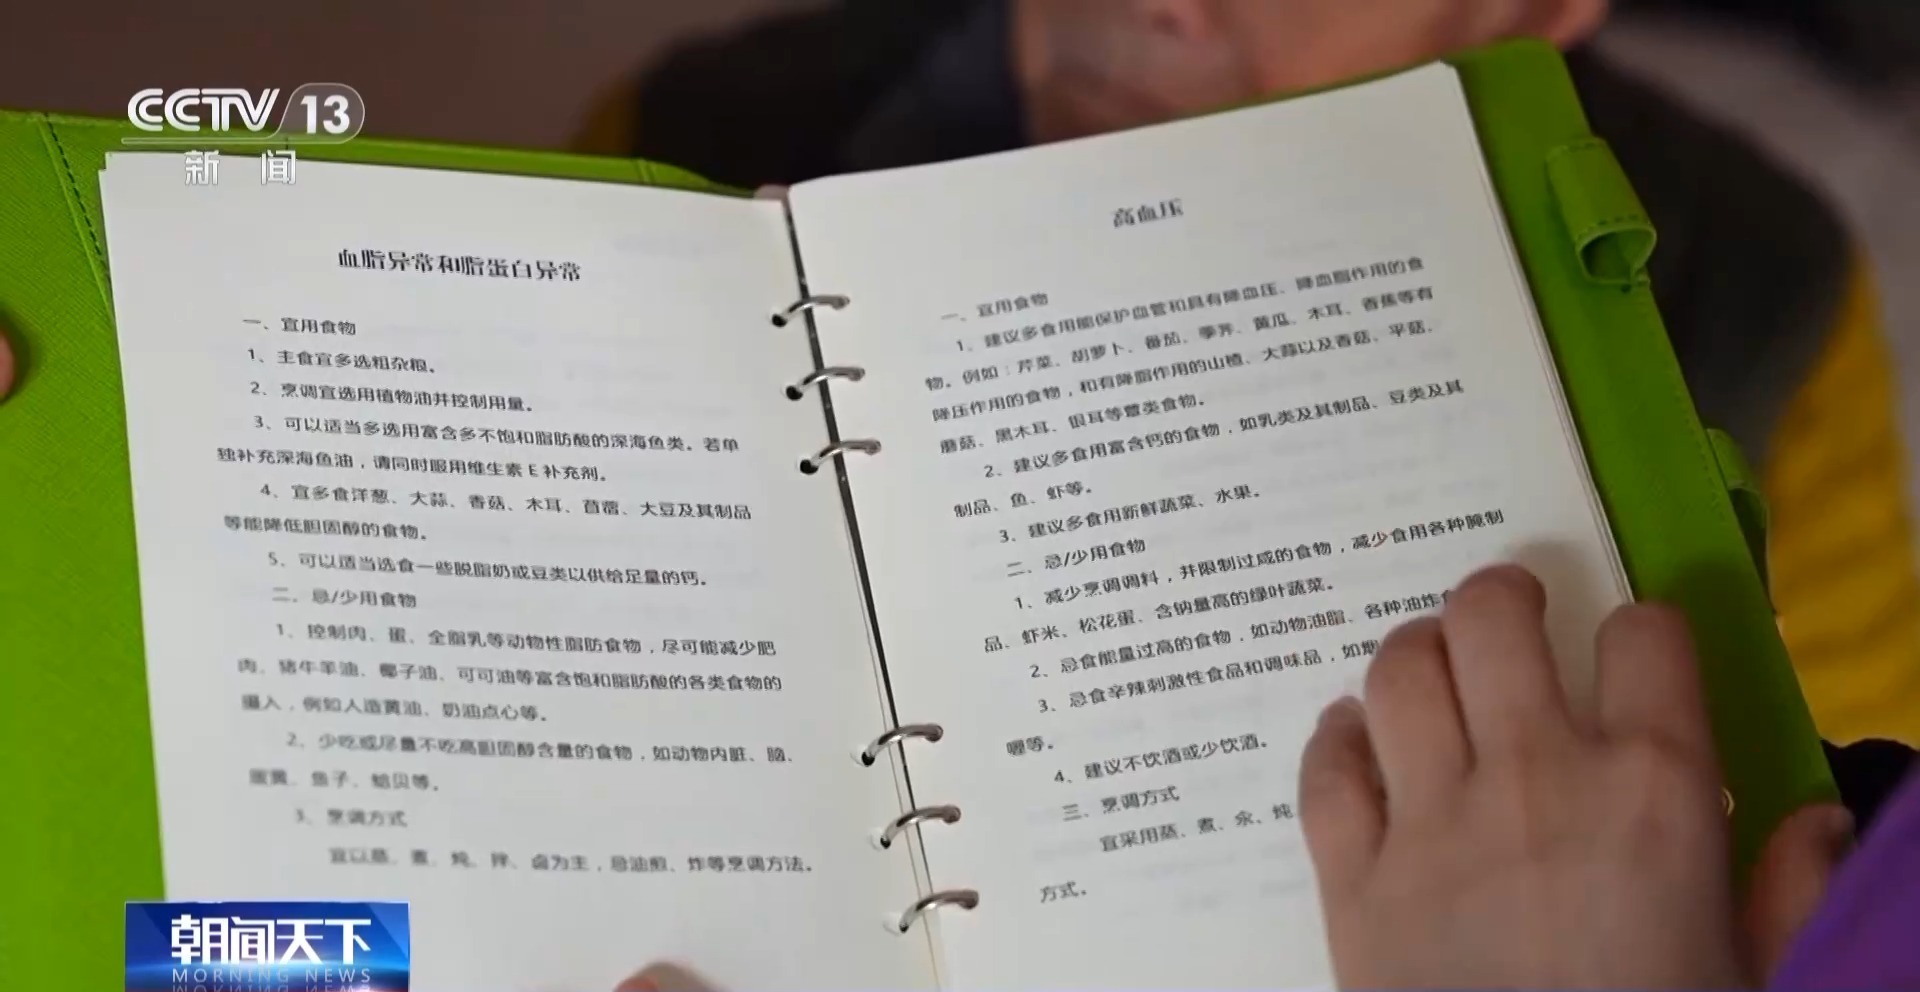 CCTV 13
新闻
血脂异常和脂蛋白异常
一、宜用食物
1、主食宜多选粗杂粮。
2、烹调宜选用植物油并控制用量。
3、可以适当多选用富含多不饱和脂肪酸的深海鱼类。若单
独补充深海鱼油，请同时服用维生素E补充剂。
4、宜多食洋葱、大蒜、香菇、木耳、苜蓿、大豆及其制品
等能降低胆固醇的食物。
5、可以适当选食一些脱脂奶或豆类以供给足量的钙。
二、忌/少用食物
1、控制肉、蛋、全脂乳等动物性脂肪食物，尽可能减少肥
肉、猪牛羊油、椰子油、可可油等富含饱和脂肪酸的各类食物的
摄入，例如人造黄油、奶油点心等。
2、少吃或尽量不吃高胆固醇含量的食物，如动物内脏、脑、
蛋黄、鱼子、蛤贝等。
3、烹调方式
宜以蒸、煮、炖、拌、卤为主，忌油煎、炸等烹调方法。
高血压
一、宜用食物
1、建议多食用能保护血管和具有降血压、降血脂作用的食
物。例如：芹菜、胡萝卜、番茄、荸荠、黄瓜、木耳、香蕉等有
降压作用的食物，和有降脂作用的山楂、大蒜以及香菇、平菇、
蘑菇、黑木耳、银耳等蕈类食物。
2、建议多食用富含钙的食物，如乳类及其制品、豆类及其
制品、鱼、虾等。
3、建议多食用新鲜蔬菜、水果。
二、忌/少用食物
1、减少烹调调料，并限制过咸的食物，减少食用各种腌制
品、虾米、松花蛋、含钠量高的绿叶蔬菜。
2、忌食能量过高的食物，如动物油脂、各种油炸食
3、忌食辛辣刺激性食品和调味品，如烟
喱等。
4、建议不饮酒或少饮酒。
三、烹调方式
宜采用蒸、煮、汆、炖
方式。
朝闻天下
MORNING NEWS